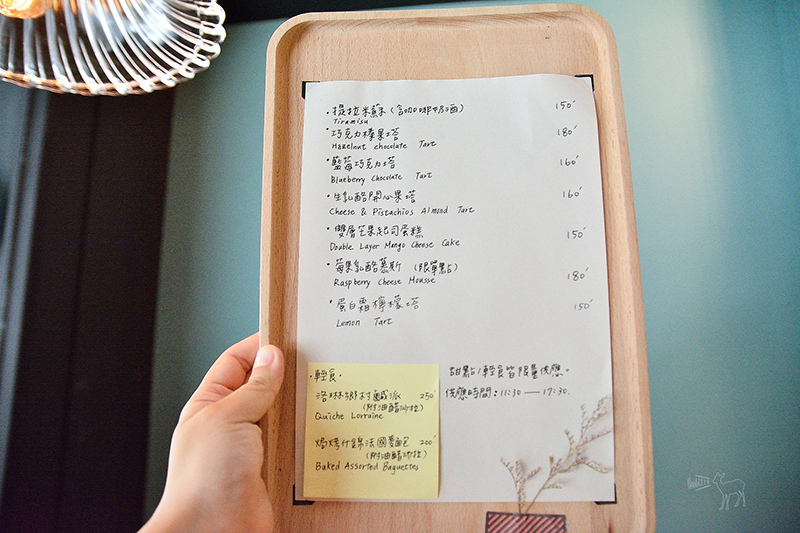 ·提拉米蘇(含咖啡奶酒) 150'
Tiramisu
·巧克力榛果塔 180'
Hazelnut chocolate Tart
·藍莓巧克力塔 160'
Blueberry Chocolate Tart
·生乳酪開心果塔 160'
Cheese & Pistachios Almond Tart
·雙層芒果起司蛋糕 150'
Double Layer Mango Cheese Cake
·莓果乳酪慕斯 (限單點) 180'
Raspberry Cheese Mousse
·蛋白霜檸檬塔 150'
Lemon Tart
·輕食·
洛林鄉村鹹派 250'
(附油醋沙拉)
Quiche Lorraine
焗烤什錦法國麵包 200'
(附油醋沙拉)
Baked Assorted Baguettes
甜點/輕食皆限量供應。
供應時間:11:30 — 17:30.